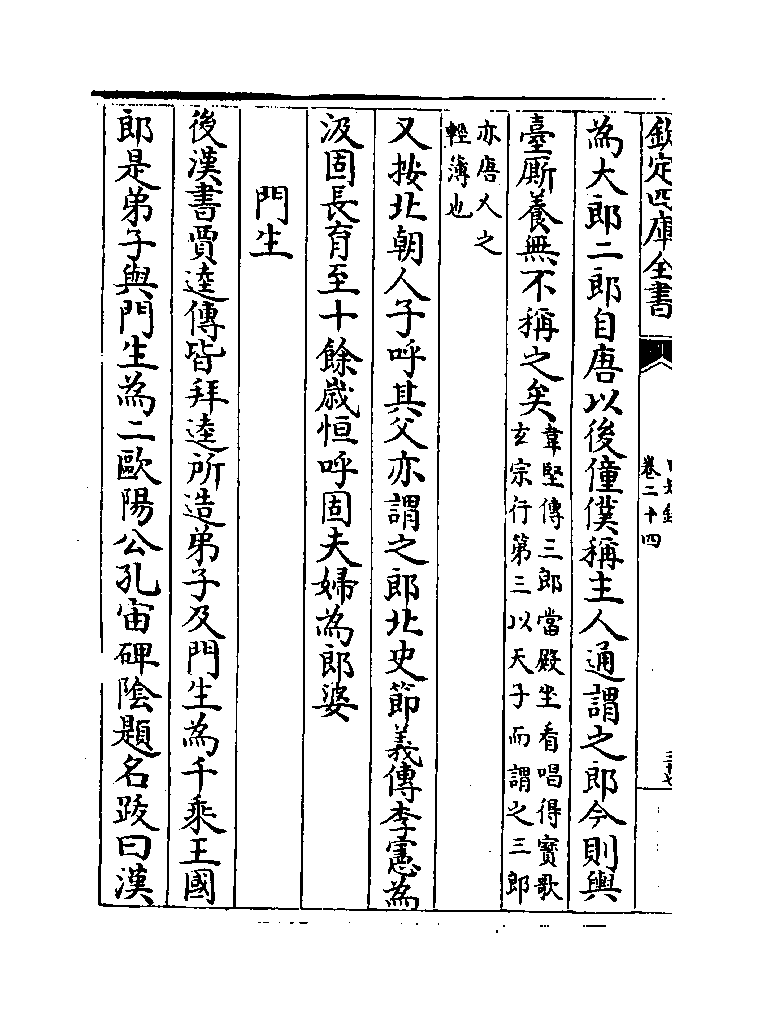 欽定四庫全書
卷二十四
為大郎二郎自唐以後僮僕稱主人通謂之郎今則輿
臺厮養無不稱之矣韋堅傳三郎當殿坐看唱得寳歌
玄宗行第三以天子而謂之三郎
亦唐人之
輕薄也
又按北朝人子呼其父亦謂之郎北史節義傳李憲為
汲固長育至十餘歲恒呼固夫婦為郎婆
門生
後漢書賈逵傳皆拜逵所造弟子及門生為千乘王國
郎是弟子與門生為二歐陽公孔宙碑陰題名跋曰漢